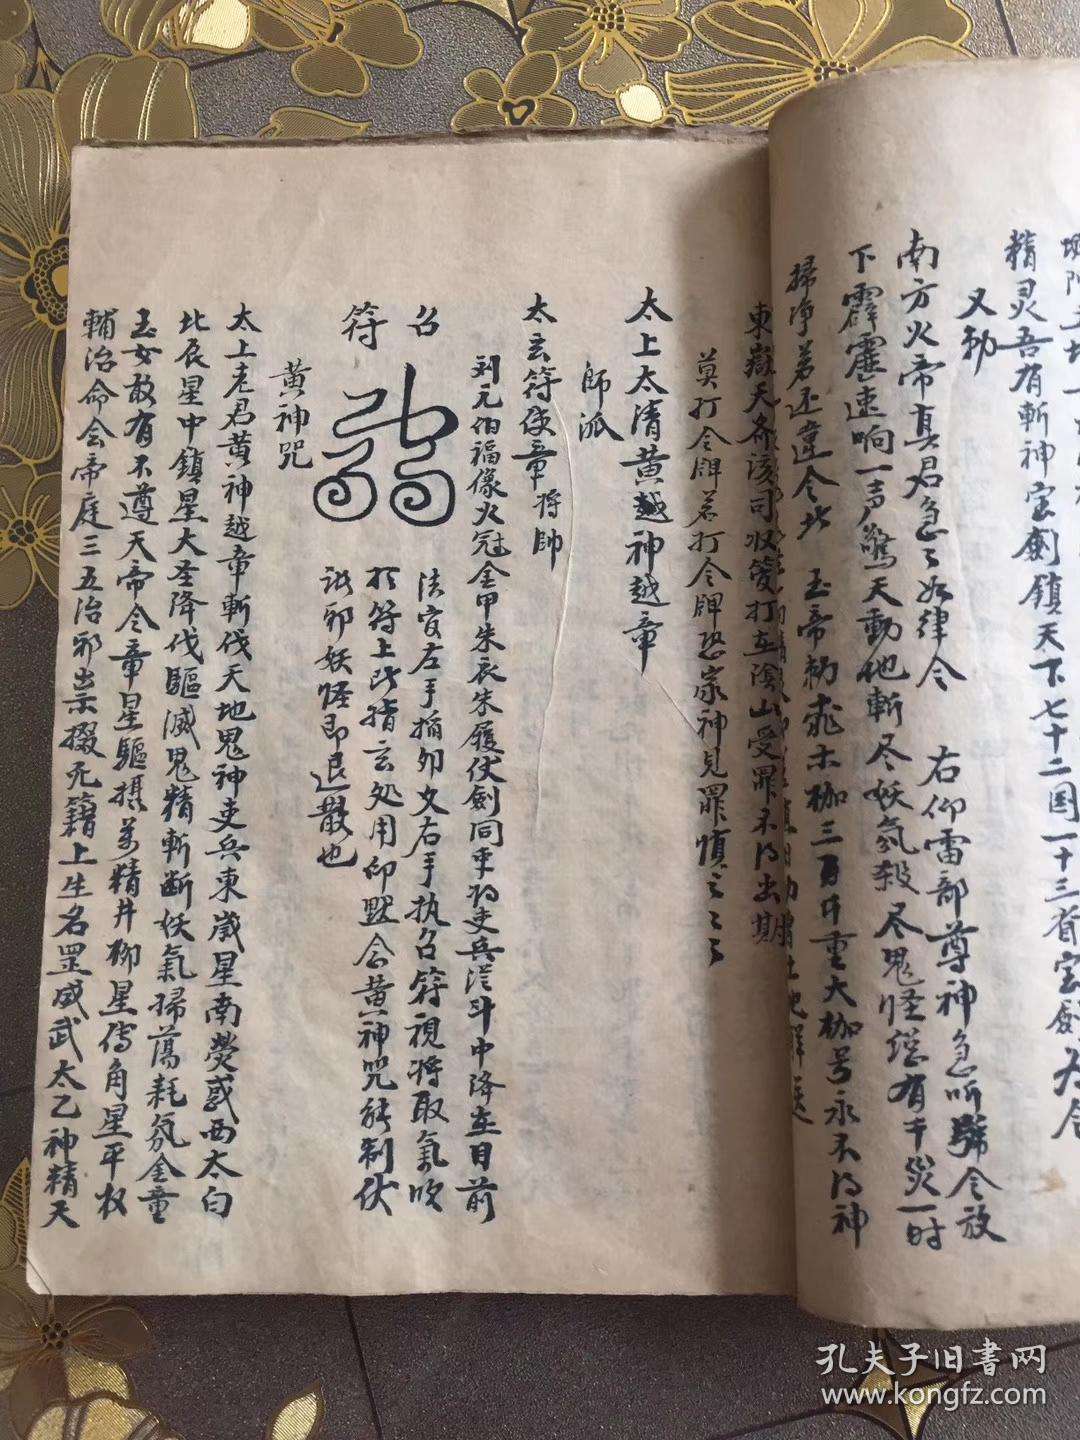 精灵吾有斬神宝劍鎮天下七十二国一十三省宝劍
又勅
南方火帝真君急々如律令　右仰雷部尊神急听號令放
下霹靂速响一声驚天動地斬尽妖氛殺尽鬼怪 有千災一时
掃净若还違令 玉帝勅 木枷三 重大枷号永不 神
東嶽天齐 司収 打在陰山受罪不 出期
莫打令牌若打令牌恐家神見罪慎之之之
太上太清黄越神越章
師派
太玄符使章将帥
刘元伯福像火冠金甲朱衣朱履仗劍同 吏兵従斗中降在目前
召
符
法官左手掐卯文右手执召符視将取氣吹
於符上 指 处用印默念黄神咒能制伏
諸邪妖怪即退散也
黄神咒
太上老君黄神越章斬伐天地鬼神吏兵東嵗星南熒惑西太白
北辰星中鎮星大圣降伐驅滅鬼精斬断妖氣掃蕩耗氛金童
玉女敢有不遵天帝令章星驅摂萬精井柳星傳角星平权
輔治命会帝庭三五治邪祟掇死籍上生名罡威武太乙神精天
孔夫子旧書网
www.kongfz.com